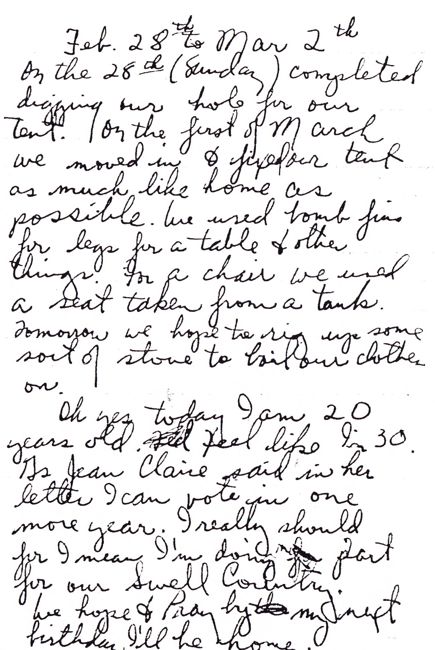 Feb. 28th to Mar 2th
On the 28th (Sunday) completed
digging our hole for our
tent. On the first of March
we moved in & fixed our tent
as much like home as
possible. We used bomb fins
for legs for a table & other
things. For a chair we used
a seat taken from a tank.
Tomorrow we hope to rig up some
sort of stove to boil our clothes
on.
Oh yes today I am 20
years old. Feel like I'm 30.
As Jean Claire said in her
letter I can vote in one
more year. I really should
for I mean I'm doing my part
for our Swell Country.
We hope & Pray by my next
birthday I'll be home.